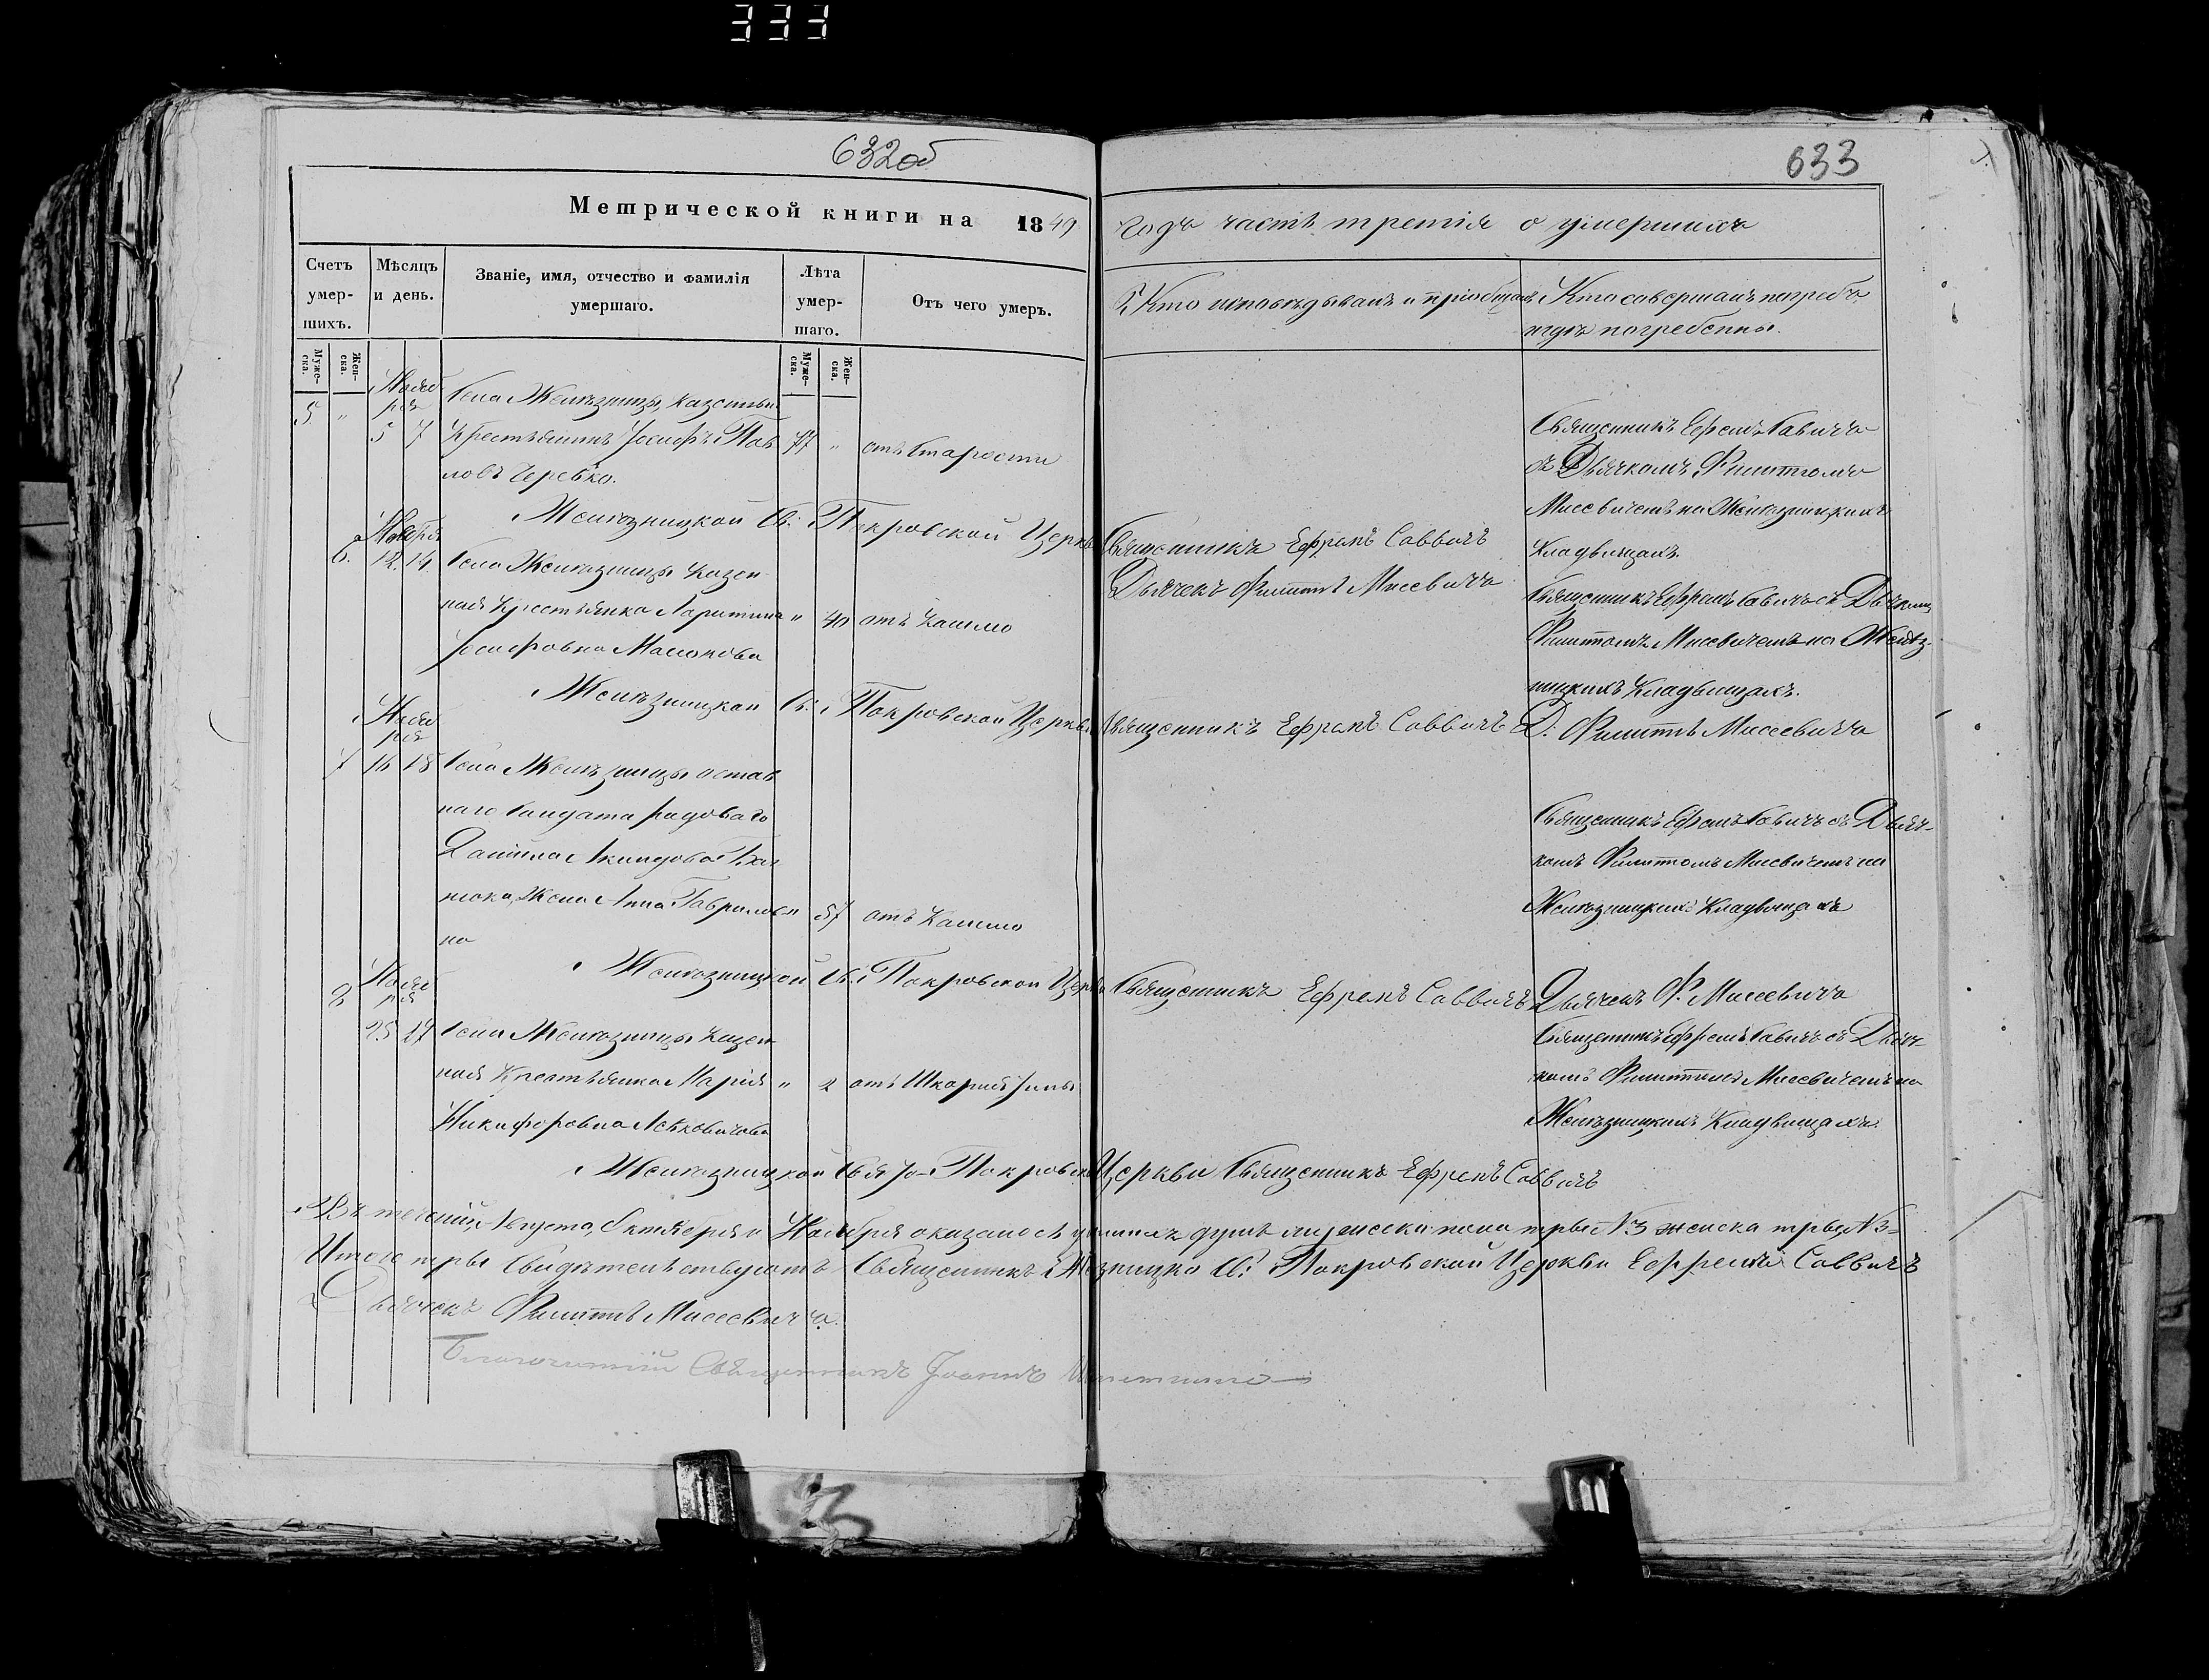 333
632об
633
Метрической книги на 1849
года часть третія о умершихъ
Счетъ умер-шихъ.
Мѣсяцъ и день.
Званіе, имя, отчество и фамилія умершаго.
Лѣта умер-шаго.
Отъ чего умеръ.
Кто исповѣдывалъ и пріобщалъ
Кто совершалъ погребе
гдѣ погребенны.
Муже-ска.
Жен-ска.
Муже-ска.
Жен-ска.
5 "
Нояб
ря
5 7
Села Желѣзницы, казенный
Крестьянинъ Іосифъ Пав
ловъ Черевко.
77 "
отъ Старости
Священникъ Ефремъ Савичъ
съ Дьячкомъ Филиппомъ
Мисевичемъ на Желѣзницкихъ
Кладвищахъ.
Желѣзницкой Св: Покровской Церкви Священникъ Ефремъ Саввичъ
Дьячекъ Филиппъ Мисевичъ
6.
Ноября
12. 14.
Села Желѣзницы Казен
ная Крестьянка
Іосифовна
" 40
отъ Кашлю
Священникъ Ефремъ Савичъ съ Дьячком
Филиппомъ Мисевичемъ на Желѣз
ницкихъ Кладвищахъ.
Желѣзницкой Св: Покровской Церкви Священникъ Ефремъ Саввичъ Д: Филиппъ Мисевичъ
7
Нояб
ря
16 18
Села Желѣзницы отстав
наго Солдата рядоваго
Даніила
Жена Анна Гаврилов
на
" 57
отъ Кашлю
Священникъ Ефремъ Савичъ съ Дьяч-
комъ Филиппомъ Мисевичемъ на
Желѣзницкихъ Кладвищахъ
Желѣзницкой Св: Покровской Церкви Священникъ Ефремъ Саввичъ Дьячекъ Ф. Мисевичъ
8
Нояб
ря
25 27
Села Желѣзницы Казен
ная Крестьянка Марія
Никифоровна
" 2
отъ
Священникъ Ефремъ Савичъ съ Дьяч-
комъ Филиппомъ Мисевичемъ на
Желѣзницкихъ Кладвищахъ.
Желѣзницкой Свято-Покровской Церкви Священникъ Ефремъ Саввичъ
Въ Августа, Октября и Ноября оказалось душъ пола три №3 женска три №3
Итого Свидѣтельствуютъ Священникъ Св: Покровской Церкви Ефремъ Саввичъ
Дьячекъ Филиппъ Мисевичъ.
Благочинный Священникъ Іоаннъ